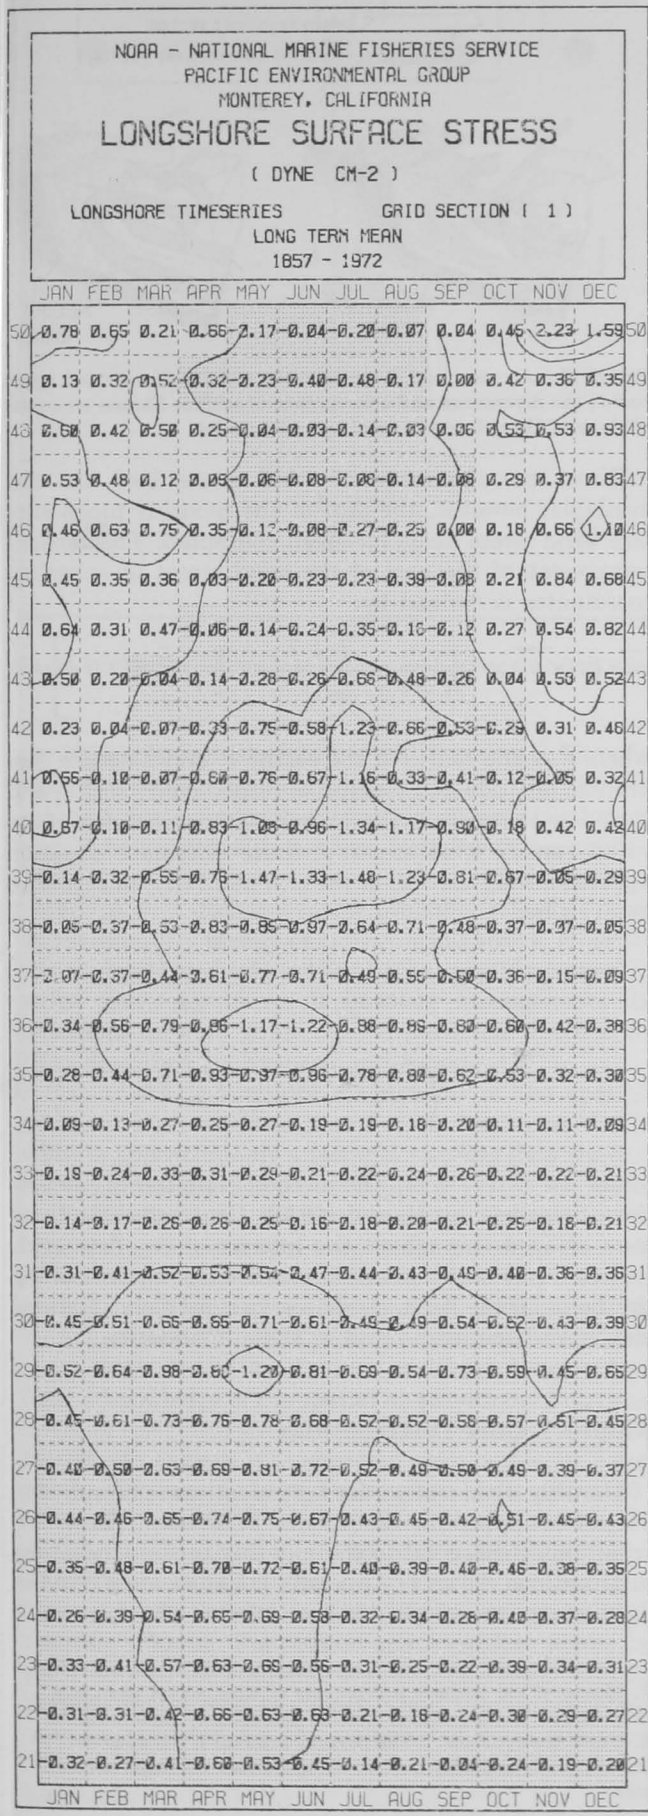 NOAA - NATIONAL MARINE FISHERIES SERVICE
PACIFIC ENVIRONMENTAL GROUP
MONTEREY, CALIFORNIA
LONGSHORE SURFACE STRESS
( DYNE CM-2 )
LONGSHORE TIMESERIES GRID SECTION ( 1 )
LONG TERM MEAN
1857 - 1972
JAN FEB MAR APR MAY JUN JUL AUG SEP OCT NOV DEC
50 0.78 0.65 0.21 0.66 -0.04 -0.20 -0.07 0.04 0.45 2.23 1.59 50
49 0.13 0.32 0.52 -0.32 -0.23 -0.40 -0.48 -0.17 0.00 0.42 0.36 0.35 49
48 0.60 0.42 0.50 0.25 -0.04 -0.03 -0.14 -0.03 0.06 0.53 0.53 0.93 48
47 0.53 0.48 0.12 0.05 -0.06 -0.08 -0.06 -0.14 -0.08 0.29 0.37 0.83 47
46 0.46 0.63 0.75 0.35 -0.12 -0.08 -0.27 -0.25 0.00 0.18 0.66 1.10 46
45 0.45 0.35 0.36 0.03 -0.20 -0.23 -0.23 -0.39 -0.08 0.21 0.84 0.68 45
44 0.64 0.31 0.47 -0.06 -0.14 -0.24 -0.35 -0.16 -0.12 0.27 0.54 0.82 44
43 0.50 0.20 -0.04 -0.14 -0.28 -0.26 -0.66 -0.48 -0.26 0.04 0.50 0.52 43
42 0.23 0.04 -0.07 -0.33 -0.75 -0.58 -1.23 -0.66 -0.53 -0.29 0.31 0.46 42
41 0.55 -0.10 -0.07 -0.60 -0.76 -0.67 -1.16 -0.33 -0.41 -0.12 0.05 0.32 41
40 0.67 -0.10 -0.11 -0.83 -1.06 -0.96 -1.34 -1.17 -0.90 -0.18 0.42 0.42 40
39 -0.14 -0.32 -0.55 -0.76 -1.47 -1.33 -1.48 -1.23 -0.81 -0.67 -0.05 -0.29 39
38 -0.05 -0.37 -0.53 -0.83 -0.85 -0.97 -0.64 -0.71 -0.48 -0.37 -0.37 -0.05 38
37 -0.07 -0.37 -0.44 -0.61 -0.77 -0.71 -0.49 -0.55 -0.60 -0.36 -0.15 -0.09 37
36 -0.34 -0.56 -0.79 -0.96 -1.17 -1.22 -0.88 -0.86 -0.60 -0.60 -0.42 -0.38 36
35 -0.28 -0.44 -0.71 -0.93 -0.97 -0.96 -0.78 -0.80 -0.62 -0.53 -0.32 -0.30 35
34 -0.09 -0.13 -0.27 -0.25 -0.27 -0.19 -0.19 -0.18 -0.20 -0.11 -0.11 -0.09 34
33 -0.19 -0.24 -0.33 -0.31 -0.29 -0.21 -0.22 -0.24 -0.26 -0.22 -0.22 -0.21 33
32 -0.14 -0.17 -0.26 -0.26 -0.25 -0.16 -0.18 -0.20 -0.21 -0.25 -0.18 -0.21 32
31 -0.31 -0.41 -0.52 -0.53 -0.54 -0.47 -0.44 -0.43 -0.49 -0.40 -0.36 -0.36 31
30 -0.45 -0.51 -0.66 -0.85 -0.71 -0.61 -0.49 -0.49 -0.54 -0.52 -0.43 -0.39 30
29 -0.52 -0.64 -0.98 -1.20 -0.81 -0.69 -0.54 -0.73 -0.59 -0.45 -0.65 29
28 -0.45 -0.61 -0.73 -0.76 -0.78 -0.68 -0.52 -0.52 -0.56 -0.57 -0.51 -0.45 28
27 -0.40 -0.50 -0.63 -0.69 -0.81 -0.72 -0.52 -0.49 -0.50 -0.49 -0.39 -0.37 27
26 -0.44 -0.46 -0.65 -0.74 -0.75 -0.67 -0.43 -0.45 -0.42 -0.51 -0.45 -0.43 26
25 -0.35 -0.48 -0.61 -0.70 -0.72 -0.61 -0.40 -0.39 -0.40 -0.46 -0.38 -0.35 25
24 -0.26 -0.39 -0.54 -0.65 -0.69 -0.58 -0.32 -0.34 -0.28 -0.40 -0.37 -0.28 24
23 -0.33 -0.41 -0.57 -0.63 -0.66 -0.56 -0.31 -0.25 -0.22 -0.39 -0.34 -0.31 23
22 -0.31 -0.31 -0.42 -0.66 -0.63 -0.63 -0.21 -0.18 -0.24 -0.30 -0.29 -0.27 22
21 -0.32 -0.27 -0.41 -0.60 -0.53 -0.45 -0.14 -0.21 -0.04 -0.24 -0.19 -0.20 21
JAN FEB MAR APR MAY JUN JUL AUG SEP OCT NOV DEC